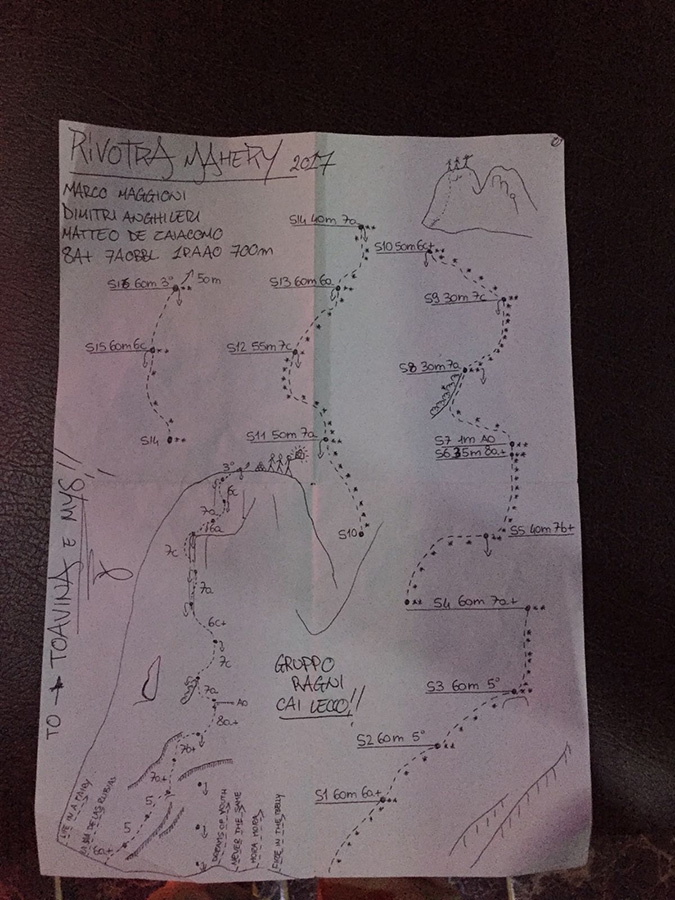 RIVOTRA MAHERY 2017
MARCO MAGGIONI
DIMITRI ANGHILERI
MATTEO DE ZAIACOMO
8A+ 7AOBBL 1PAAO 700m
S16 60m 3° 50m
S15 60m 6c
S14
S14 40m 7a
S13 60m 6a
S12 55m 7c
S11 50m 7a
S10
S10 50m 6c+
S9 30m 7c
S8 30m 7a
S7 1m A0
S6 35m 8a+
S5 40m 7b+
S4 60m 7a+
S3 60m 5°
S2 60m 5°
S1 60m 6a+
TO → TOAVINA E MYS!!
3°
6c
7a
6a
7c
7a
6c+
7c
7a
A0
8a+
7b+
7a+
5
5
6a+
GRUPPO
RAGNI
CAI LECCO!!
LIFE IN A FAIRY
DREAMS OF YOUTH
NEVER THE SAME
MORA MORA
FIRE IN THE BELLY